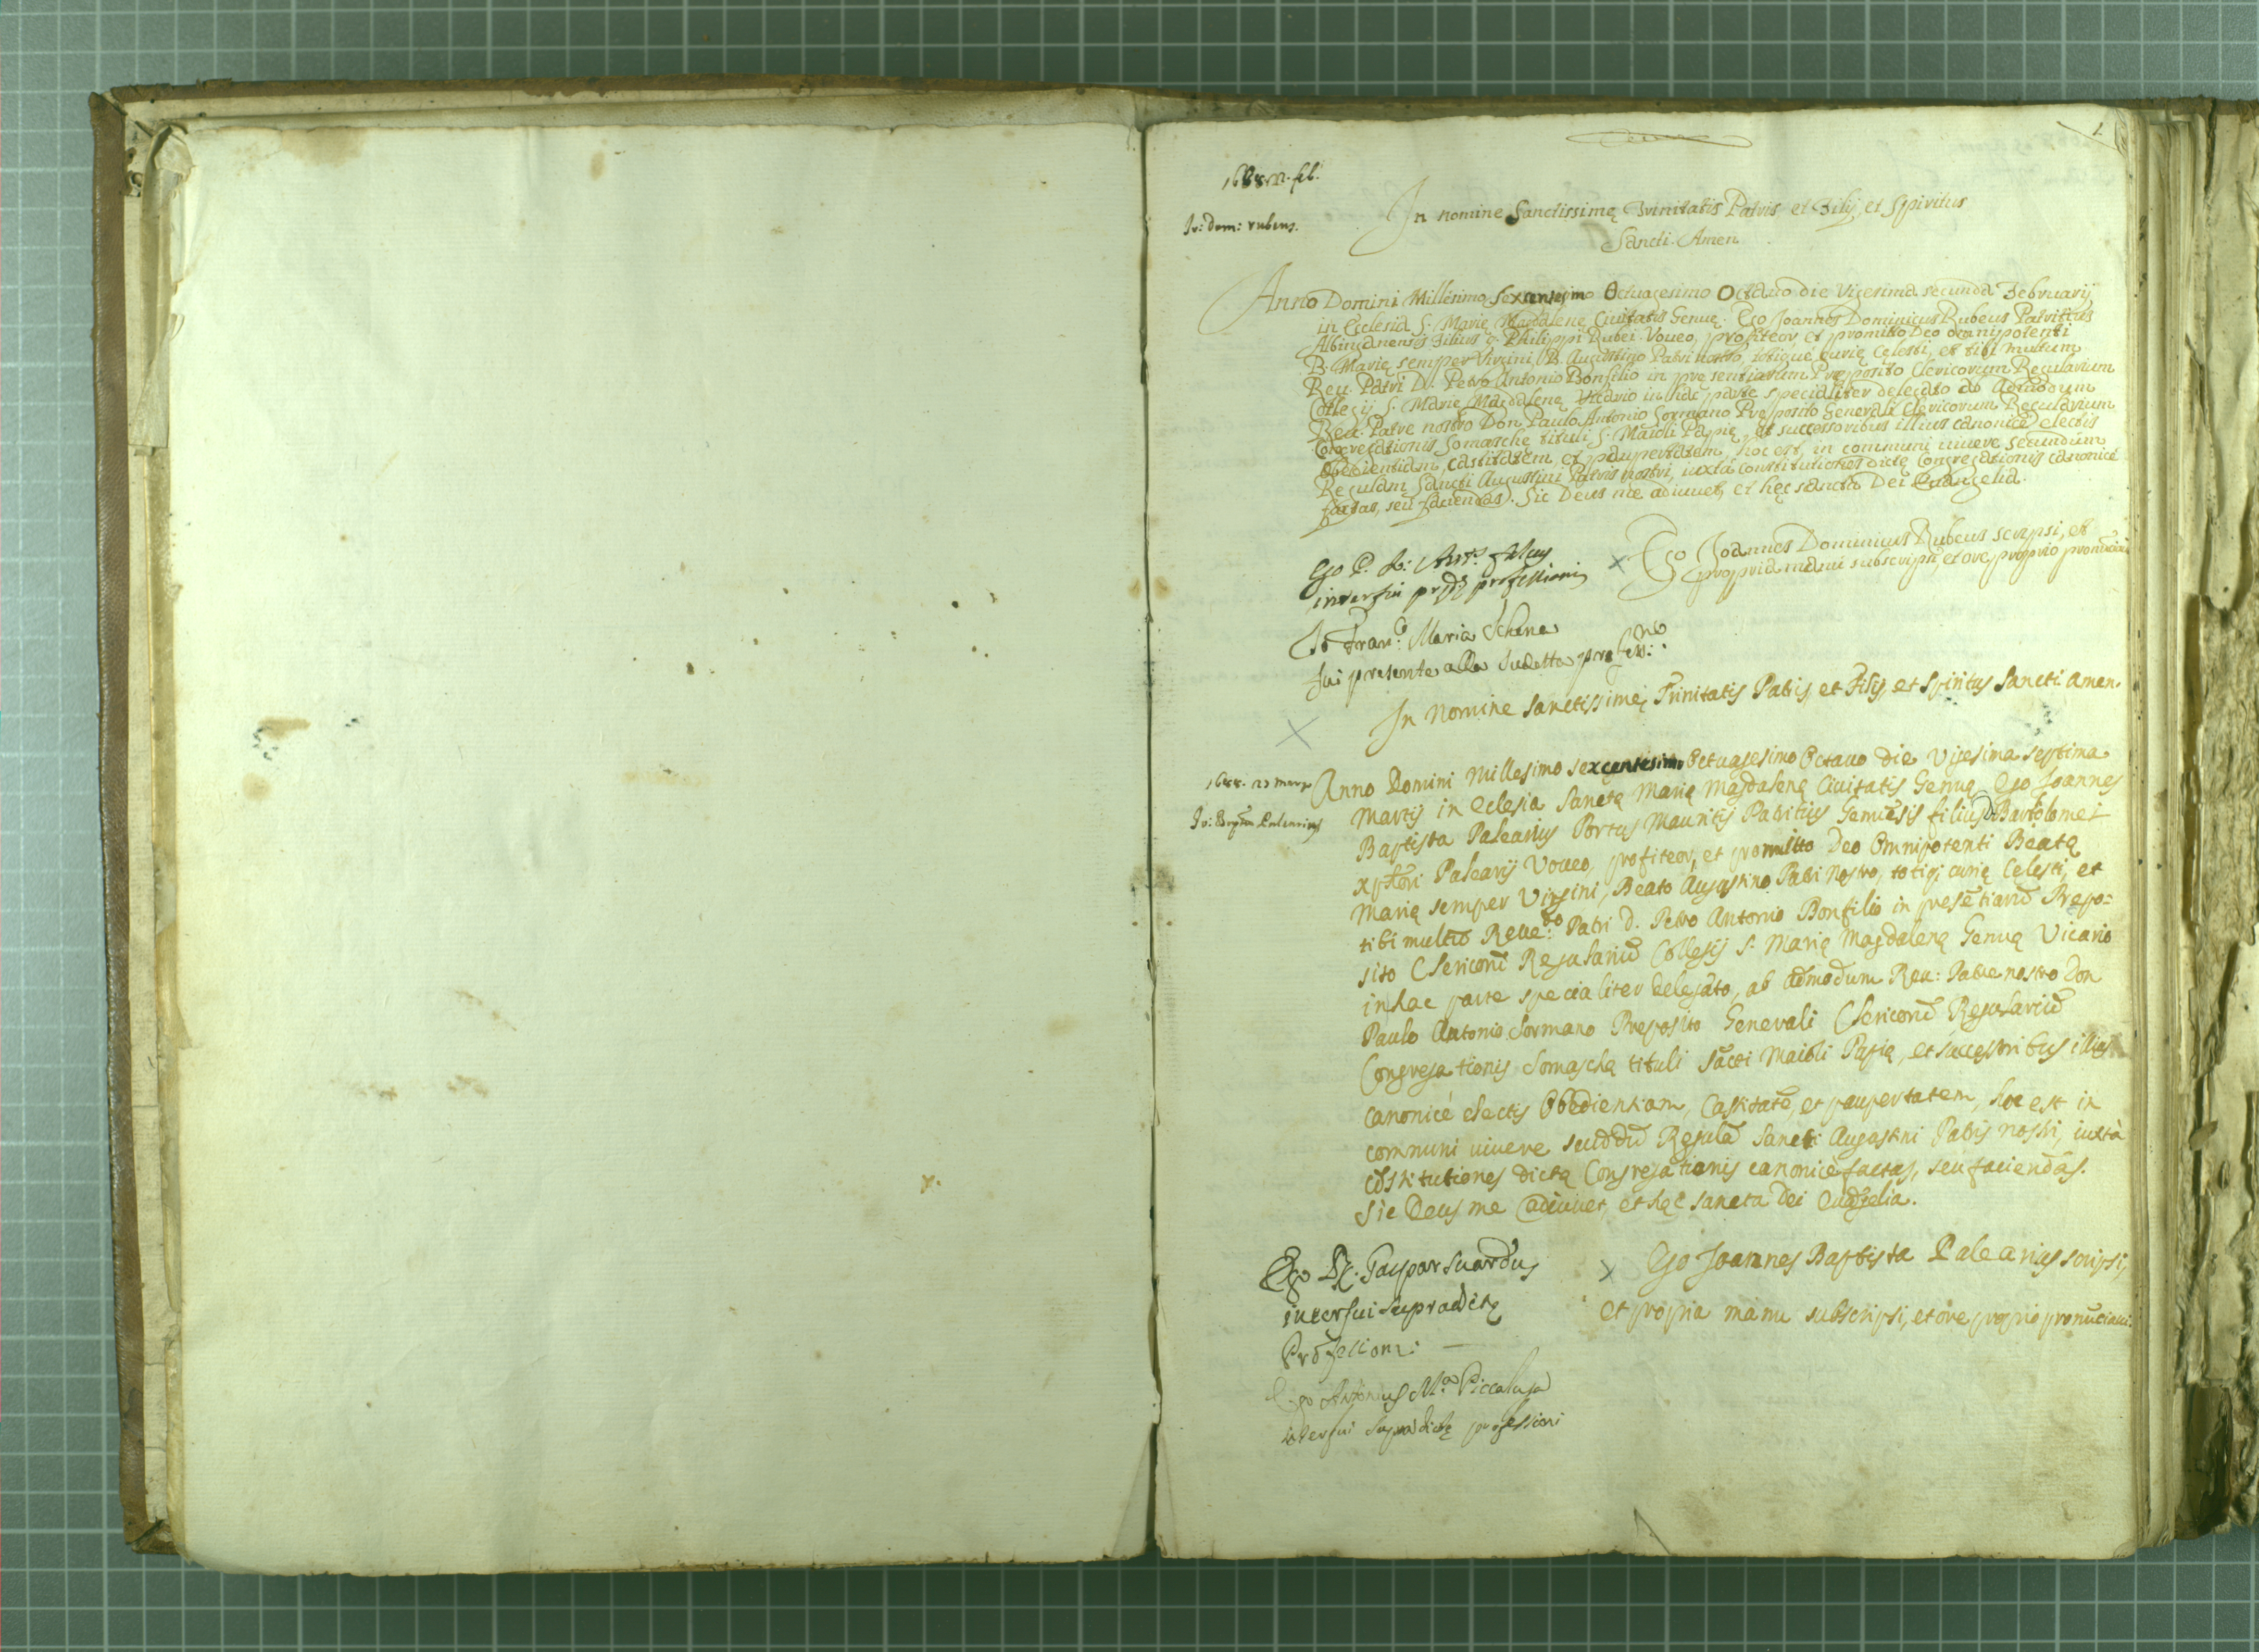 1.
1688. 22. feb.
Io: Dom: rubeus.
In nomine Sanctissimę Trinitatis Patris et Filij, et Spiritus
Sancti. Amen
Anno Domini Millesimo Sexcentesimo Octuagesimo Octavo die Vigesima secunda Februarij
in Ecclesia S. Marię Magdalenę Civitatis Genuę. Ego Joannes Dominicus Rubeus Patritius
Albinganensis Filius q. Philippi Rubei. Voveo, profiteor, et promitto Deo omnipotenti
B. Marię semper Virgini, B. Augustino Patri nostro, totique curię celesti, et tibi multum
Reu. Patri D. Petro Antonio Bonfilio in presentiarum Preposito Clericorum Regularium
Collegij S. Marię Magdalenę Vicario in hac parte specialiter delegato ab admodum
Reu. Patre nostro Don Paulo Antonio Sormano Preposito Generali Clericorum Regularium
Congregationis Somaschę tituli S. Maioli Papię, et successoribus illius canonicè electis
Obedientiam, castitatem, et paupertatem, hoc est, in communi vivere secundum
Regulam Sancti Augustini Patris nostri, iuxtà constitutiones dictę Congregationis canonicè
factas, seu faciendas. Sic Deus me adiuvet, et hęc sancta Dei Evangelia.
Ego P. Io: Ant.s
interfui prędę professioni
X Ego Joannes Dominicus Rubeus scripsi, et
propria manu subscripsi et ore proprio pronūciavi
Io Fran.co Maria Schena
fui presente alla sudetta profess:no
X
In nomine sanctissimę Trinitatis Patris, et Filij, et Spiritus Sancti Amen.
1688. 27 mar
Io: Bapta Palearius
Anno Domini Millesimo sexcentesimo Octuagesimo Octavo die Vigesima septima
Martij in Eclesia Sanctę Marię Magdalenę Civitatis Genuę Ego Joannes
Baptista Palearius Portus Mauritij Patritius Genuēsis filius D. Bartolomei
Palearij Voveo, profiteor, et promitto Deo Omnipotenti Beatę
Marię semper Virgini, Beato Augustino Patri Nostro, totiq; curię Celesti, et
tibi multū Reue:do Patri D. Petro Antonio Bonfilio in presētiarū Prepo=
sito Clericorū Regulariū Collegij S. Marię Magdalenę Genuę Vicario
in hac parte specialiter delegato, ab admodum Reu: Patre nostro Don
Paulo Antonio Sormano Preposito Generali Clericorū Regulariū
Congregationis Somaschę tituli Sācti Maioli Papię, et successoribus illius
canonicè electis Obedientiam, Castitatē, et paupertatem, hoc est in
communi vivere secūdū Regulā Sancti Augustini Patris nostri, iuxtà
cōstitutiones dictę Congregationis canonicè factas, seu faciendas.
Sic Deus me adiuvet, et hęc sancta Dei Evāgelia.
Ego D. Gaspar Suardus
interfui supradictę
Professioni:
X Ego Joannes Baptista Palearius scripsi,
et propria manu subscripsi, et ore proprio pronūciavi.
Ego Antonius M.a Piccaluga
interfui supradictę professioni